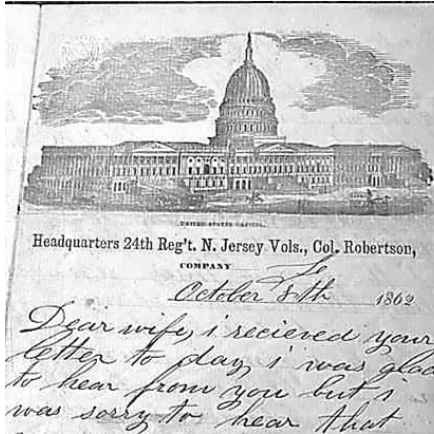 UNITED STATES CAPITOL.
Headquarters 24th Reg't. N. Jersey Vols., Col. Robertson,
COMPANY
October 8th 1862
Dear wife, i recieved your
letter to day i was glad
to hear from you but i
was sorry to hear that